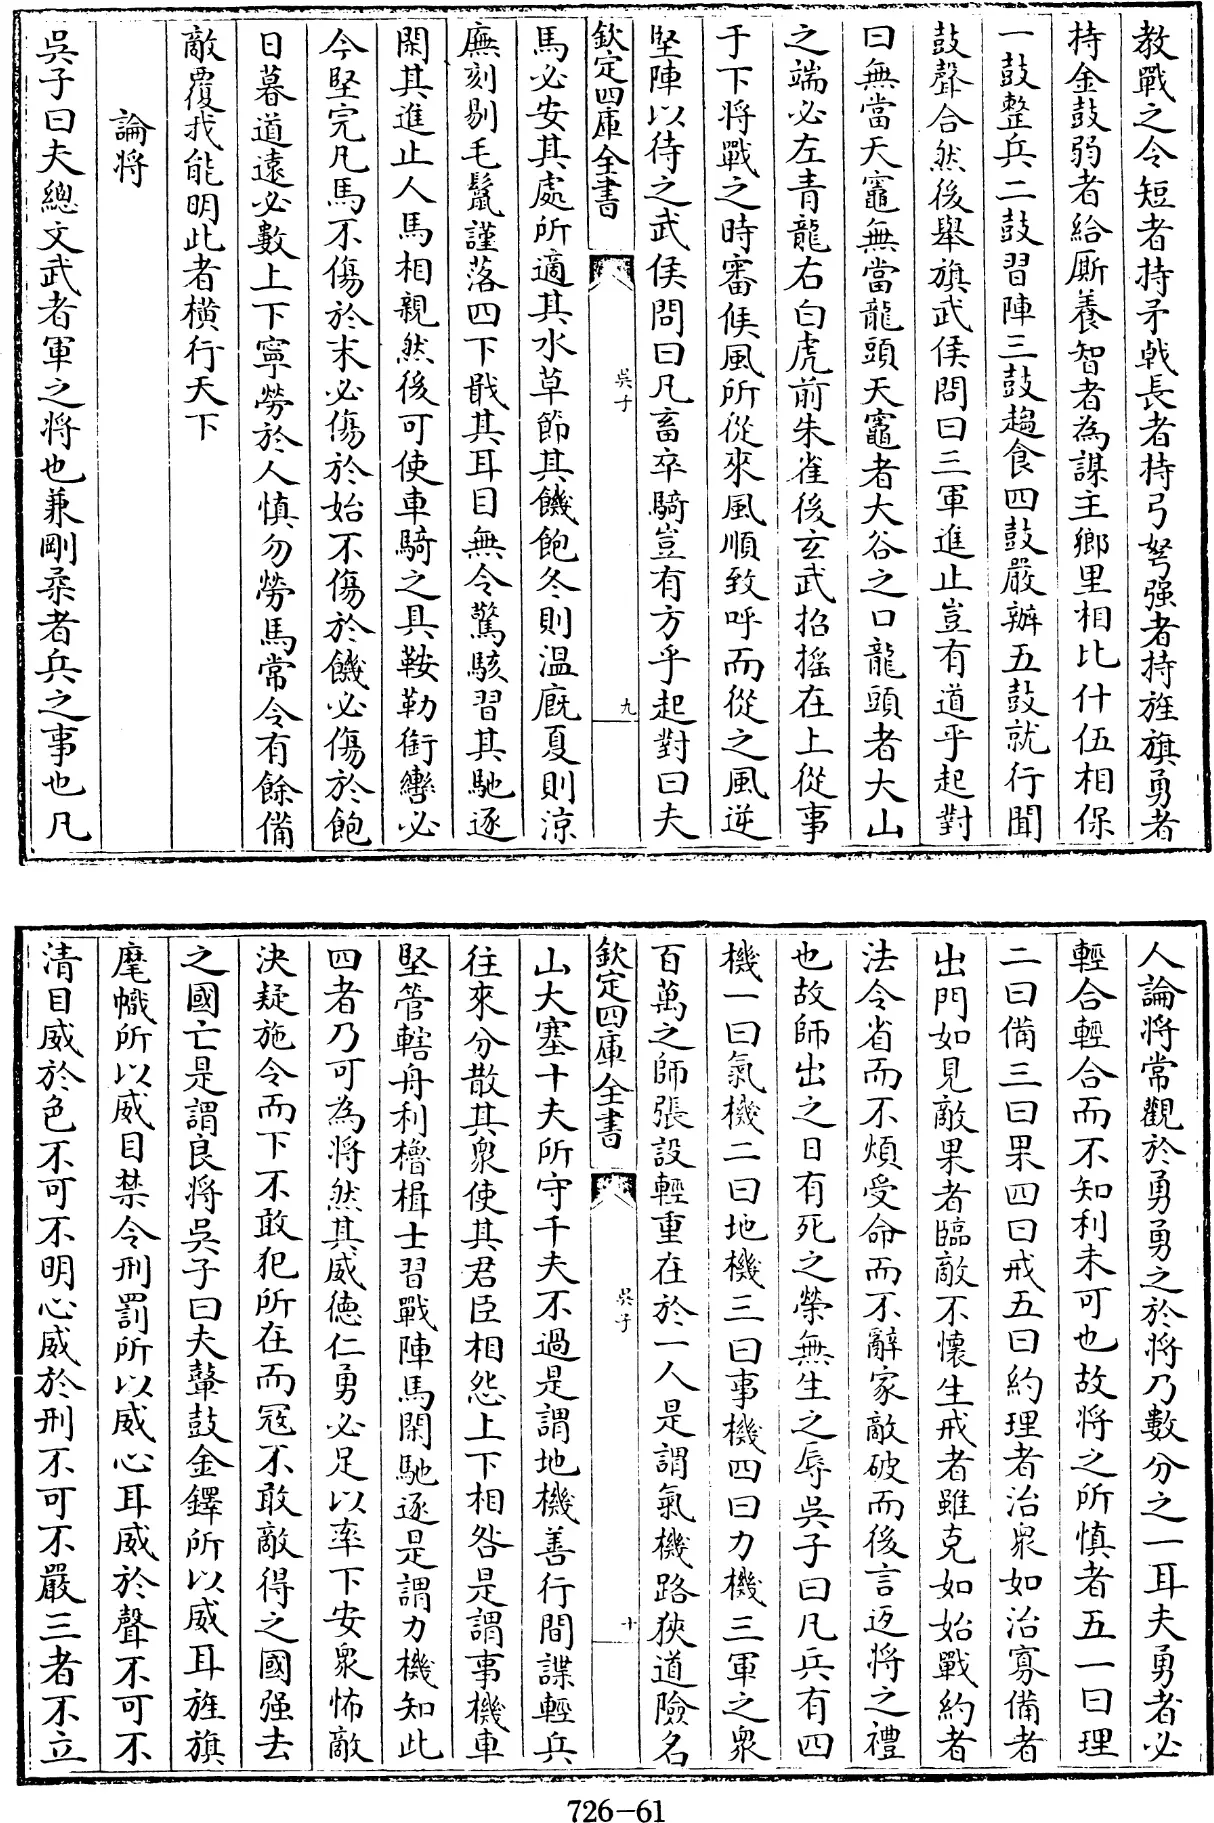 教戰之令短者持矛戟長者持弓弩强者持旌旗勇者
持金鼓弱者給厮養智者為謀主鄉里相比什伍相保
一鼓整兵二鼓習陣三鼓趨食四鼓嚴辦五鼓就行聞
鼓聲合然後舉旗武侯問曰三軍進止豈有道乎起對
曰無當天竈無當龍頭天竈者大谷之口龍頭者大山
之端必左青龍右白虎前朱雀後玄武招摇在上從事
于下將戰之時審候風所從來風順致呼而從之風逆
堅陣以待之武侯問曰凡畜卒騎豈有方乎起對曰夫
欽定四庫全書
吳子
九
馬必安其處所適其水草節其饑飽冬則温廐夏則涼
廡刻剔毛鬣謹落四下戢其耳目無令驚駭習其馳逐
閑其進止人馬相親然後可使車騎之具鞍勒銜轡必
令堅完凡馬不傷於末必傷於始不傷於饑必傷於飽
日暮道遠必數上下寧勞於人慎勿勞馬常令有餘備
敵覆我能明此者橫行天下
論將
吳子曰夫總文武者軍之將也兼剛柔者兵之事也凡
人論將常觀於勇勇之於將乃數分之一耳夫勇者必
輕合輕合而不知利未可也故將之所慎者五一曰理
二曰備三曰果四曰戒五曰約理者治衆如治寡備者
出門如見敵果者臨敵不懷生戒者雖克如始戰約者
法令省而不煩受命而不辭家敵破而後言返將之禮
也故師出之日有死之榮無生之辱吳子曰凡兵有四
機一曰氣機二曰地機三曰事機四曰力機三軍之衆
百萬之師張設輕重在於一人是謂氣機路狹道險名
欽定四庫全書
吳子
十
山大塞十夫所守千夫不過是謂地機善行間諜輕兵
往來分散其衆使其君臣相怨上下相咎是謂事機車
堅管轄舟利櫓楫士習戰陣馬閑馳逐是謂力機知此
四者乃可為將然其威德仁勇必足以率下安衆怖敵
決疑施令而下不敢犯所在而冦不敢敵得之國强去
之國亡是謂良將吳子曰夫鼙鼓金鐸所以威耳旌旗
麾幟所以威目禁令刑罰所以威心耳威於聲不可不
清目威於色不可不明心威於刑不可不嚴三者不立
726-61